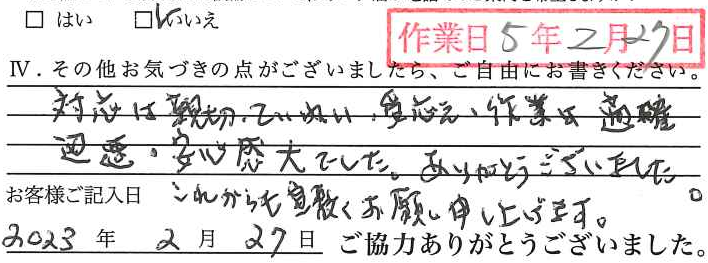 □ はい　□いいえ
作業日 5年2月27日
Ⅳ．その他お気づきの点がございましたら、ご自由にお書きください。
対応は親切、ていねい、受応え、作業は適確
迅悪、安心感大でした。ありがとうございました。
お客様ご記入日 これからも宜敷くお願い申し上げます。
2023 年 2 月 27 日 ご協力ありがとうございました。